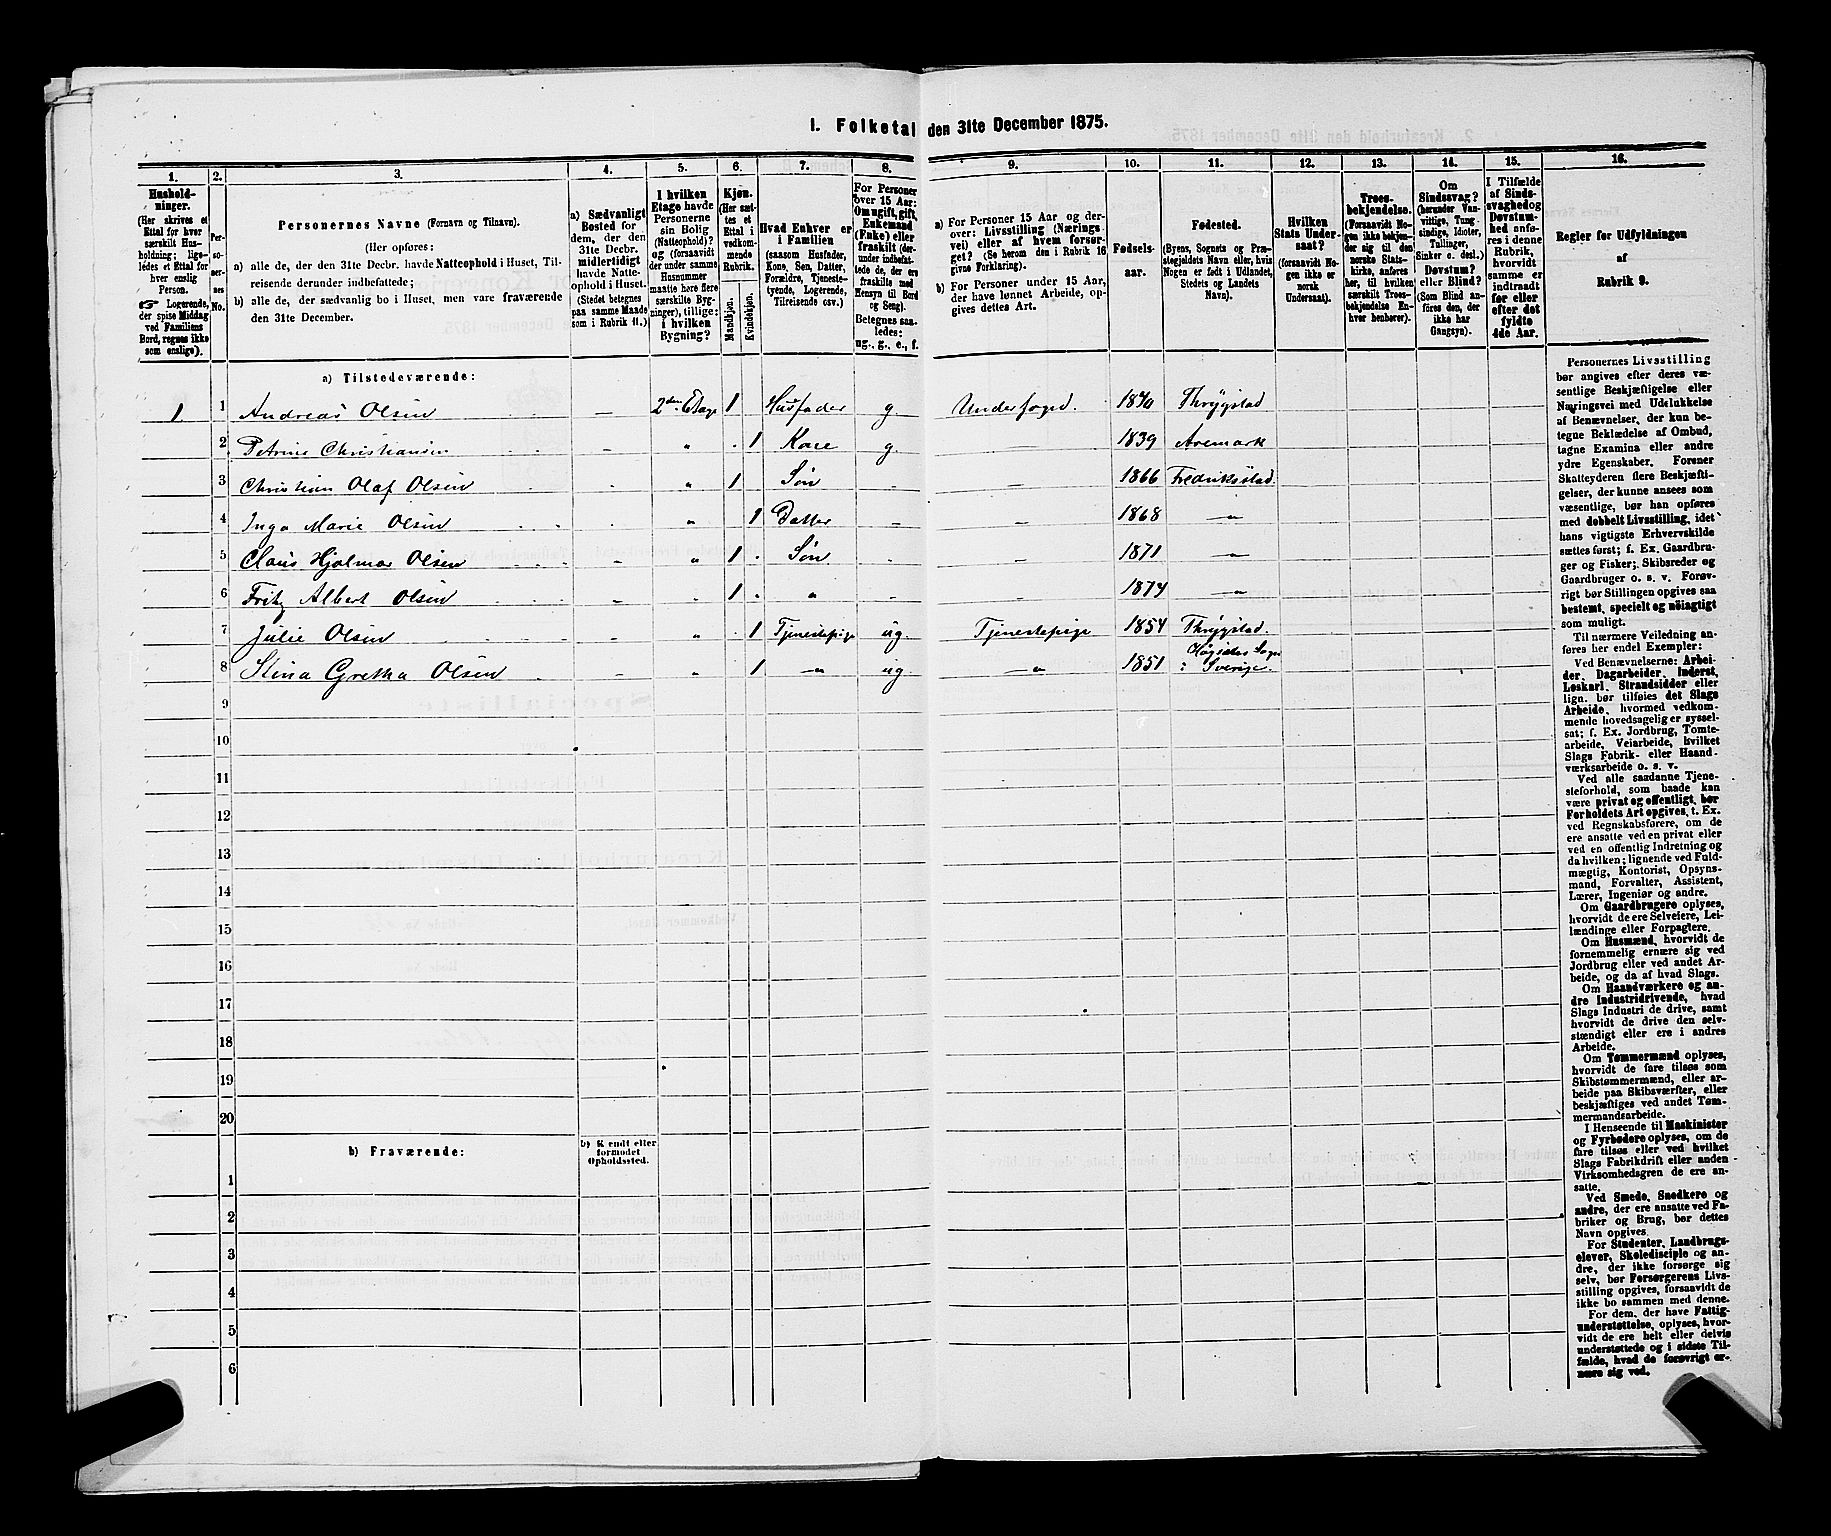 I. Folketal den 31te December 1875.
1. 2. 3. 4. 5. 6. 7. 8. 9. 10. 11. 12. 13. 14. 15. 16.
Hushold-
ninger.
(Her skrives et
Ettal for hver
særskilt Hus-
holdning; lige-
ledes et Ettal for
hver enslig
Person.
Logerende,
der spise Middag
ved Familiens
Bord, regnes ikke
som enslige).
Per-
so-
ner-
nes
No.
Personernes Navne (Fornavn og Tilnavn).
(Her opføres:
a) alle de, der den 31te Decbr. havde Natteophold i Huset, Til-
reisende derunder indbefattede;
b) alle de, der sædvanlig bo i Huset, men vare fraværende
den 31te December.
a) Sædvanligt
Bosted for
dem, der den
31te Decbr.
midlertidigt
havde Natte-
ophold i Huset.
(Stedet betegnes
paa samme Maade
som i Rubrik 11.)
I hvilken
Etage havde
Personerne
sin Bolig
(Natteophold)?
og (forsaavidt
der under samme
Husnummer
maatte høre flere
særskilte Byg-
ninger), tillige:
i hvilken
Bygning?
Kjøn.
(Her sæt-
tes et
Ettal i
vedkom-
mende
Rubrik.
Mandkjøn.
Kvindekjøn.
Hvad Enhver er
i Familien
(saasom Husfader,
Kone, Søn, Datter,
Forældre, Tjeneste-
tyende, Logerende,
Tilreisende osv.)
For Personer
over 15 Aar:
Om ugift, gift,
Enkemand
(Enke) eller
fraskilt (der-
under indbefat-
tede de, der ere
fraskilte med
Hensyn til Bord
og Seng).
Betegnes saa-
ledes:
ug., g., e., f.
a) For Personer 15 Aar og der-
over: Livsstilling (Nærings-
vei) eller af hvem forsør-
get? (Se herom den i Rubrik 16
givne Forklaring).
b) For Personer under 15 Aar,
der have lønnet Arbeide, op-
gives dettes Art.
Fødsels-
aar.
Fødested.
(Byens, Sognets og Præ-
stegjeldets Navn eller, hvis
Nogen er født i Udlandet,
Stedets og Landets
Navn).
Hvilken
Stats Under-
saat?
(forsaavidt No-
gen ikke er
norsk
Undersaat).
Troes-
bekjendelse.
(Forsaavidt No-
gen ikke bekjen-
der sig til den
norske Stats-
kirke, anføres
her, til hvilken
særskilt Troes-
bekjendelse En-
hver henhører).
Om
Sindssvag?
(herunder Van-
vittige, Tung-
sindige, Idioter,
Tullinger,
Sinker o. desl.)
Døvstum?
eller Blind?
(Som Blind an-
føres den, der
ikke har
Gangsyn).
I Tilfælde
af Sinds-
svaghed og
Døvstum-
hed anfø-
res i denne
Rubrik,
hvorvidt
samme er
indtraadt
før eller
efter det
fyldte
4de Aar.
Regler for Udfyldningen
af
Rubrik 9.
a) Tilstedeværende:
1 1 Andreas Olsen — 2den Etage 1 Husfader g. Underfoged. 1840 Thrygstad
2 Petrine Christiansen — „ 1 Kone g. — 1839 Aremark
3 Christian Olaf Olsen — „ 1 Søn — — 1866 Fredriksstad
4 Inga Marie Olsen — „ 1 Datter — — 1868 —„
5 Claus Hjalmar Olsen — „ 1 Søn. — — 1871 —„
6 Fritz Albert Olsen — „ 1 „ — — 1874 —„
7 Julie Olsen — „ 1 Tjenestepige ug. Tjenestepige 1854 Thrygstad.
8 Stina Gretha Olsen — „ 1 —„ ug. —„ 1851 Sogn i Sverige.
9
10
11
12
13
14
15
16
17
18
19
20
b) Fraværende:
b) Kjendt eller
formodet
Opholdssted.
1
2
3
4
5
6
Personernes Livsstilling
bør angives efter deres væ-
sentlige Beskjæftigelse eller
Næringsvei med Udelukkelse
af Benævnelser, der kun be-
tegne Beklædelse af Ombud,
tagne Examina eller andre
ydre Egenskaber. Forener
Skatteyderen flere Beskjæfti-
gelser, der kunne ansees som
væsentlige, bør han opføres
med dobbelt Livsstilling, idet
hans vigtigste Erhvervskilde
sættes først; f. Ex. Gaardbru-
ger og Fisker; Skibsreder og
Gaardbruger o. s. v. Forøv-
rigt bør Stillingen opgives saa
bestemt, specielt og nøiagtigt
som muligt.
Til nærmere Veiledning an-
føres her endel Exempler:
Ved Benævnelserne: Arbei-
der, Dagarbeider, Inderst,
Løskarl, Strandsidder eller
lign. bør tilføies det Slags
Arbeide, hvormed vedkom-
mende hovedsagelig er syssel-
sat; f. Ex. Jordbrug, Tomte-
arbeide, Veiarbeide, hvilket
Slags Fabrik- eller Haand-
værksarbeide o. s. v.
Ved alle saadanne Tjene-
steforhold, som baade kan
være privat og offentligt, bør
Forholdets Art opgives, t. Ex.
ved Regnskabsførere, om de
ere ansatte ved en privat eller
ved en offentlig Indretning og
da hvilken; lignende ved Fuld-
mægtig, Kontorist, Opsyns-
mand, Forvalter, Assistent,
Lærer, Ingeniør og andre.
Om Gaardbrugere oplyses,
hvorvidt de ere Selveiere, Lei-
lændinge eller Forpagtere.
Om Husmænd, hvorvidt de
fornemmelig ernære sig ved
Jordbrug eller ved andet Ar-
beide, og da af hvad Slags.
Om Haandværkere og an-
dre Industridrivende, hvad
Slags Industri de drive, samt
hvorvidt de drive den selv-
stændigt eller ere i andres
Arbeide.
Om Tømmermænd oplyses,
hvorvidt de fare tilsøs som
Skibstømmermænd, eller ar-
beide paa Skibsværfter, eller
beskjæftiges ved andet Tøm-
mermandsarbeide.
I Henseende til Maskinister
og Fyrbødere oplyses, om de
fare tilsøs eller ved hvilket
Slags Fabrikdrift eller anden
Virksomhedsgren de ere an-
satte.
Ved Smede, Snedkere og
andre, der ere ansatte ved Fa-
briker og Brug, bør dettes
Navn opgives.
For Studenter, Landbrugs-
elever, Skoledisciple og an-
dre, der ikke forsørge sig
selv, bør Forsørgerens Livs-
stilling opgives, forsaavidt de
ikke bo sammen med denne.
For dem, der have Fattig-
understøttelse, oplyses, hvor-
vidt de ere helt eller delvis
understøttede og i sidste Til-
fælde, hvad de forøvrigt er-
nære sig ved.